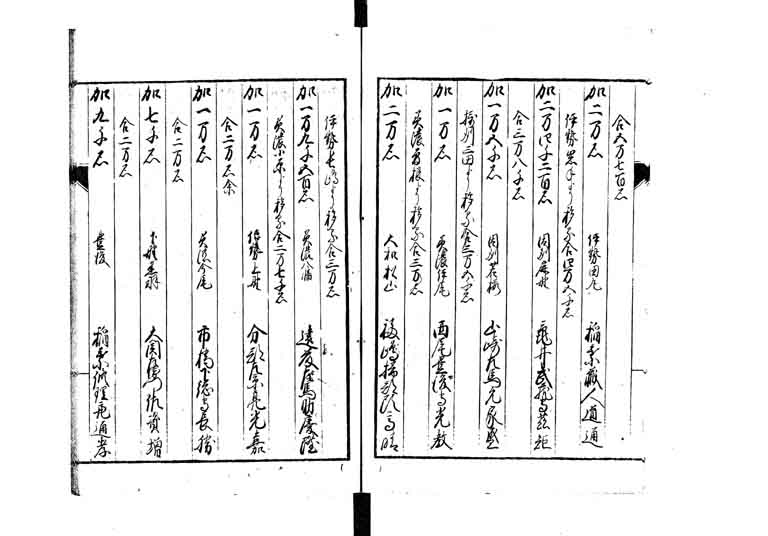 合五万七百石
加二万石 伊勢田丸 稲葉蔵人道通
伊勢岩手より移る合四万五千石
加二万四千二百石 因州鹿野 亀井武蔵守茲矩
合三万八千石
加一万五千石 因州若桜 山崎左馬允家盛
摂州三田より移る合三万五千石
加一万石 美濃任尾 西尾豊後守光教
美濃曽根より移る合三万石
加二万石 大和松山 福嶋掃部頭高晴
伊勢長嶋より移る合三万石
加一万九千五百石 美濃八幡 遠藤左馬助慶隆
美濃小原より移る合二万七千石
加一万石 伊勢上野 分部左京亮光嘉
合二万石余
加一万石 美濃今尾 市橋下総守長勝
合二万石
加七千石 下野黒羽 大関左衛門佐資増
合二万石
加九千石 豊後 稲葉修理亮通孝